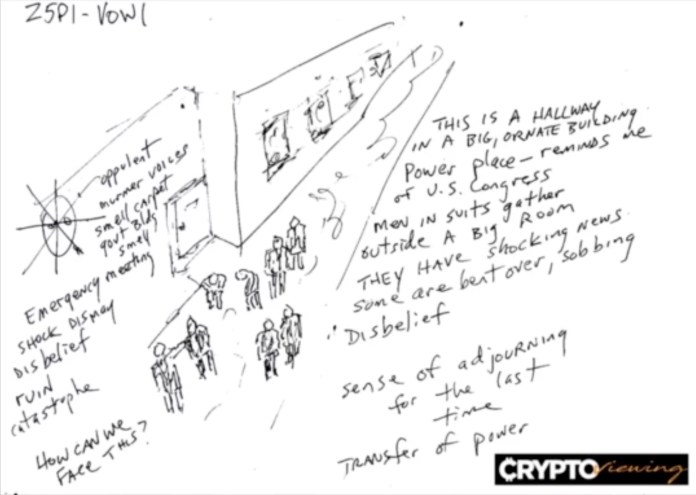 25P1-VOW1
oppulent
murmer voices
small carpet
govt Bldg
smell
Emergency meeting
SHOCK DISMAY
DISbelief
RUIN
catastrophe
HOW CAN WE
FACE THIS?
THIS IS A HALLWAY
IN A BIG, ORNATE BUILDING
Power place - reminds me
of U.S. Congress
men in suits gather
outside A Big Room
THEY HAVE SHOCKING NEWS.
some are bent over, sobbing
Disbelief
sense of adjourning
for the last
time
TRANSfer of power
CRYPTOviewing